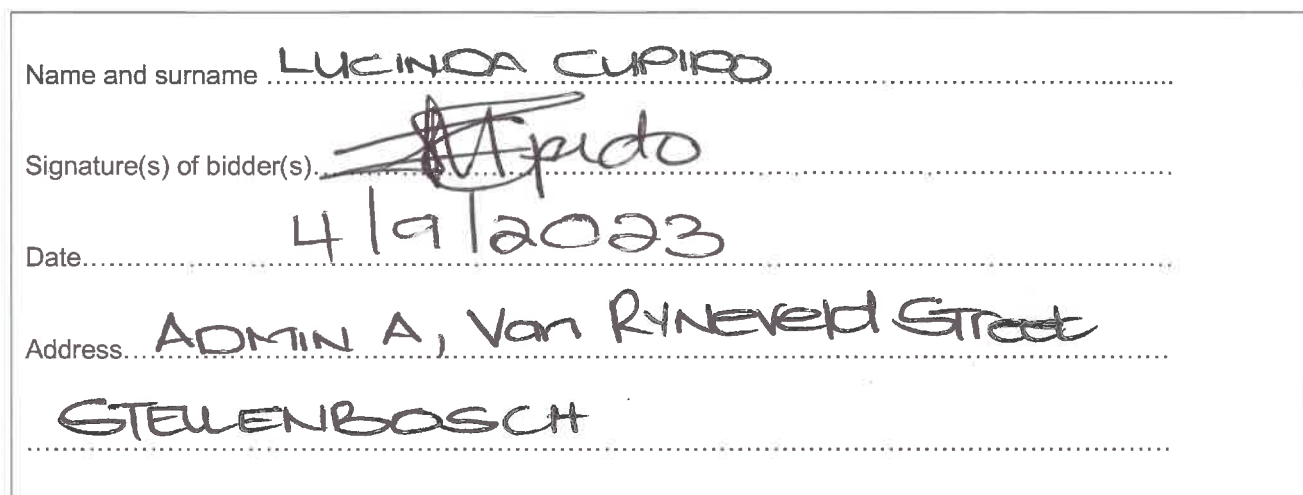 Name and surname LUCINDA CUPIDO
Signature(s) of bidder(s). Cupido
Date 4/9/2023
Address. ADMIN A, Van RYNEVELD STreet
STELLENBOSCH